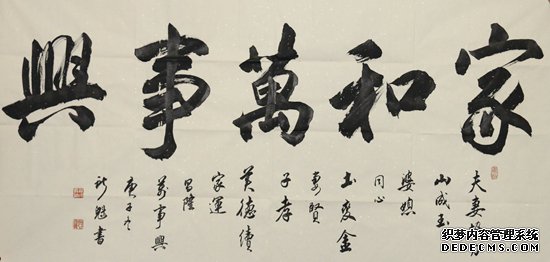 家和萬事興
夫妻協力
山成玉
婆媳
同心
土变金
妻賢
子孝
美德續
家運
昌隆
萬事興
庚子冬
魁書
织梦内容管理系统
DEDECMS.COM